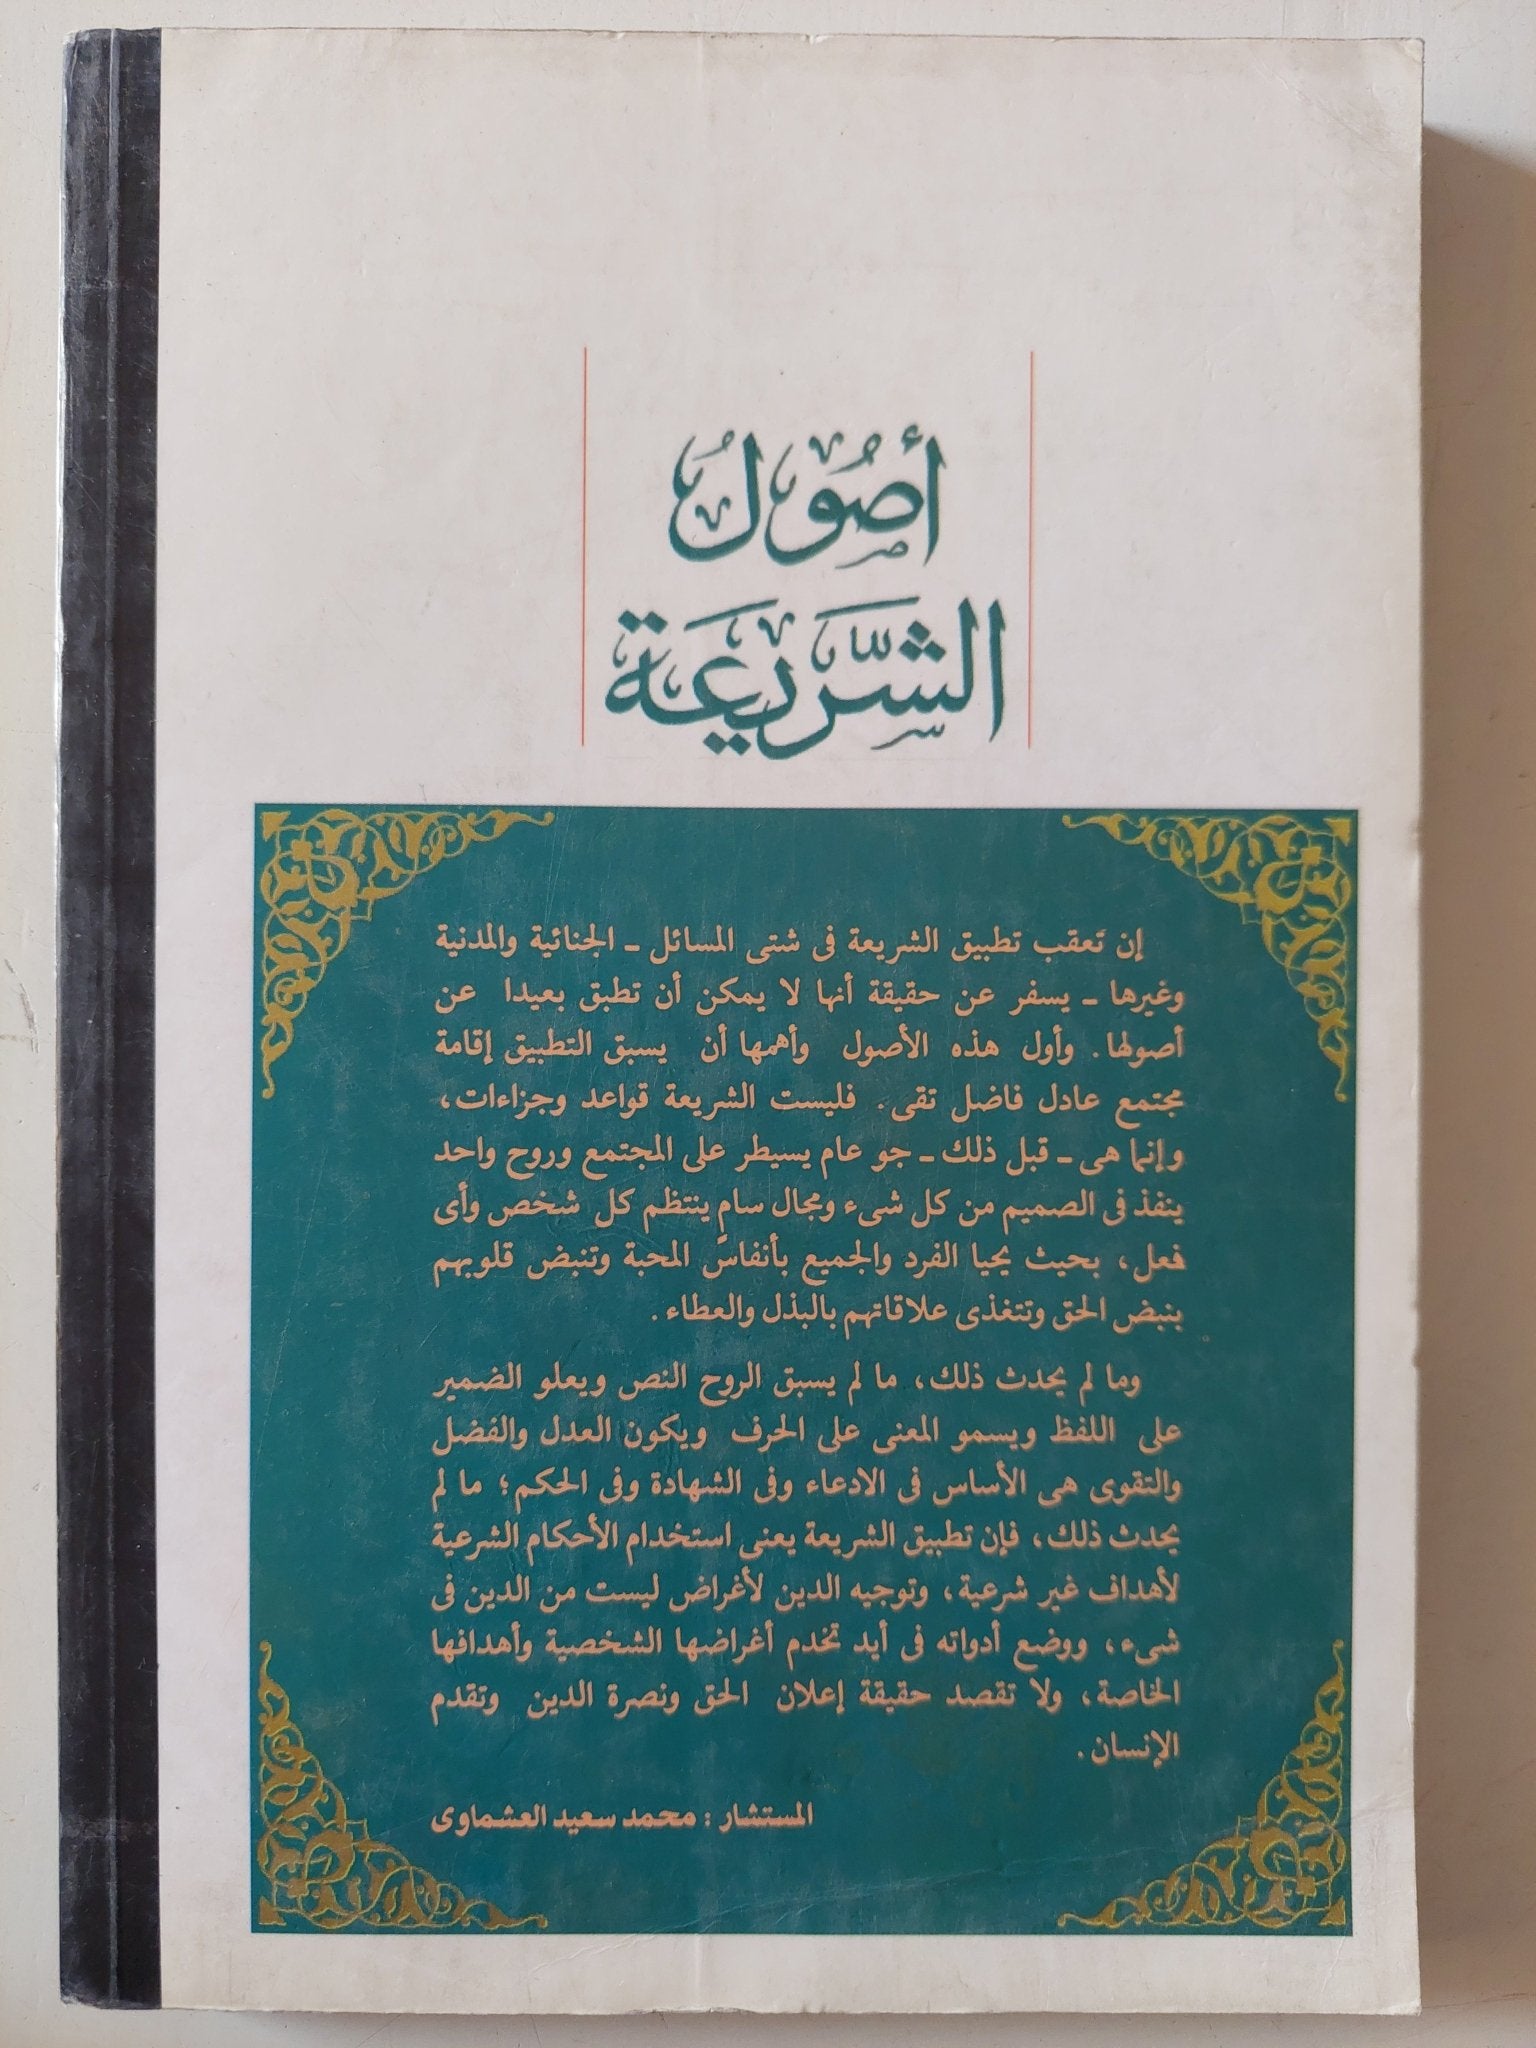 أصُولُ
الشَّريعَة
إن تَعقب تطبيق الشريعة فى شتى المسائل ـ الجنائية والمدنية
وغيرها ـ يسفر عن حقيقة أنها لا يمكن أن تطبق بعيدا عن
أصولها. وأول هذه الأصول وأهمها أن يسبق التطبيق إقامة
مجتمع عادل فاضل تقى. فليست الشريعة قواعد وجزاءات،
وإنما هى ـ قبل ذلك ـ جو عام يسيطر على المجتمع وروح واحد
ينفذ فى الصميم من كل شىء ومجال سامٍ ينتظم كل شخص وأى
فعل، بحيث يحيا الفرد والجميع بأنفاس المحبة وتنبض قلوبهم
بنبض الحق وتتغذى علاقاتهم بالبذل والعطاء.
وما لم يحدث ذلك، ما لم يسبق الروح النص ويعلو الضمير
على اللفظ ويسمو المعنى على الحرف ويكون العدل والفضل
والتقوى هى الأساس فى الادعاء وفى الشهادة وفى الحكم؛ ما لم
يحدث ذلك، فإن تطبيق الشريعة يعنى استخدام الأحكام الشرعية
لأهداف غير شرعية، وتوجيه الدين لأغراض ليست من الدين فى
شىء، ووضع أدواته فى أيد تخدم أغراضها الشخصية وأهدافها
الخاصة، ولا تقصد حقيقة إعلان الحق ونصرة الدين وتقدم
الإنسان.
المستشار : محمد سعيد العشماوى